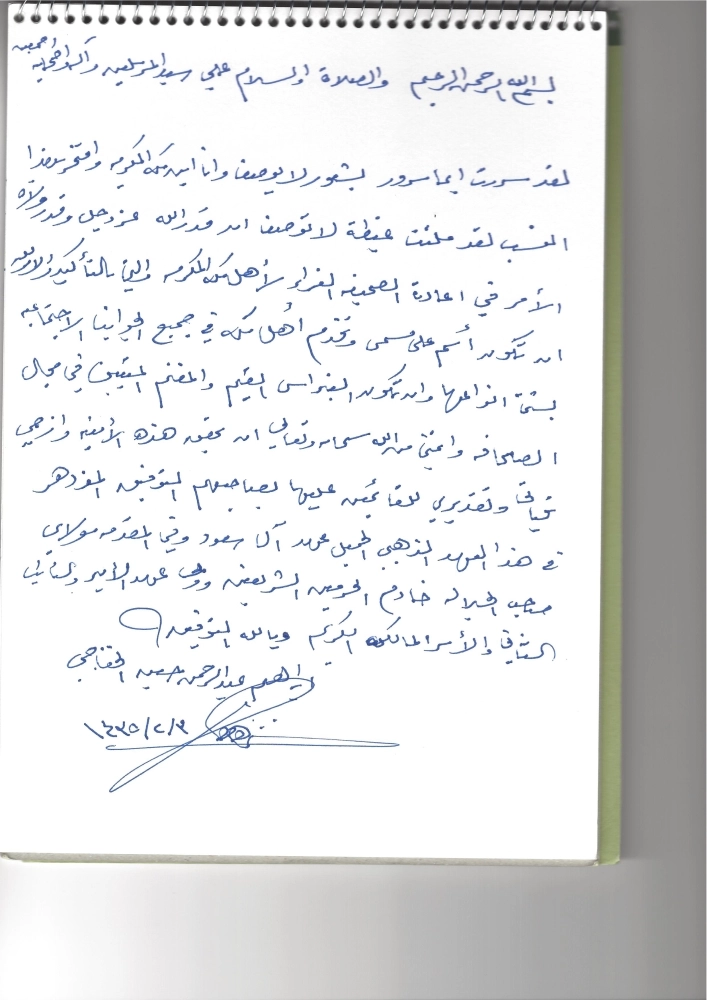 بسم الله الرحمن الرحيم والصلاة والسلام على سيد المرسلين وآله وأصحابه أجمعين
لقد سررت إيما سرور بشعور لا يوصف وأنا ابن مكة المكرمة وافتخر بهذا
المنسب لقد ملئت غبطة لا توصف ان قدر الله عز وجل وقدر ولاة
الأمر في اعادة الصحيفه الغراء لأهل مكة المكرمه والتي بالتأكيد
ان تكون أسم على مسمى وتخدم أهل مكه في جميع الجوانب الاجتماعيه
بشتى انواعها وان تكون النبراس القيم والمغنم في مجال
الصحافه واتمنى من الله سبحانه وتعالى ان يحقق هذه الأمنيه وازجي
تحياتي وتقديري للقائمين عليها لصاحبهم التوفيق المزدهر
في هذا العهد الذهبي الجميل عهد آل سعود وفي المقدمه مولاي
صاحب الجلاله خادم الحرمين الشريفين وولي عهده الأمير والنائب
الثاني والأسر المالكه الكريم وبالله التوفيق
عبدالرحمن حسين الخفاجي
١٤٣٥/٢/٣